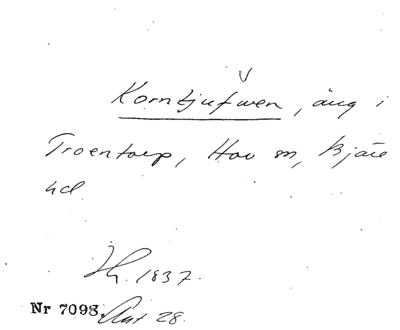 Korntjufwen, äng i
Troentorp, Hov sn, Bjäre
hd
1837.
Nr 7098. Ant 28.